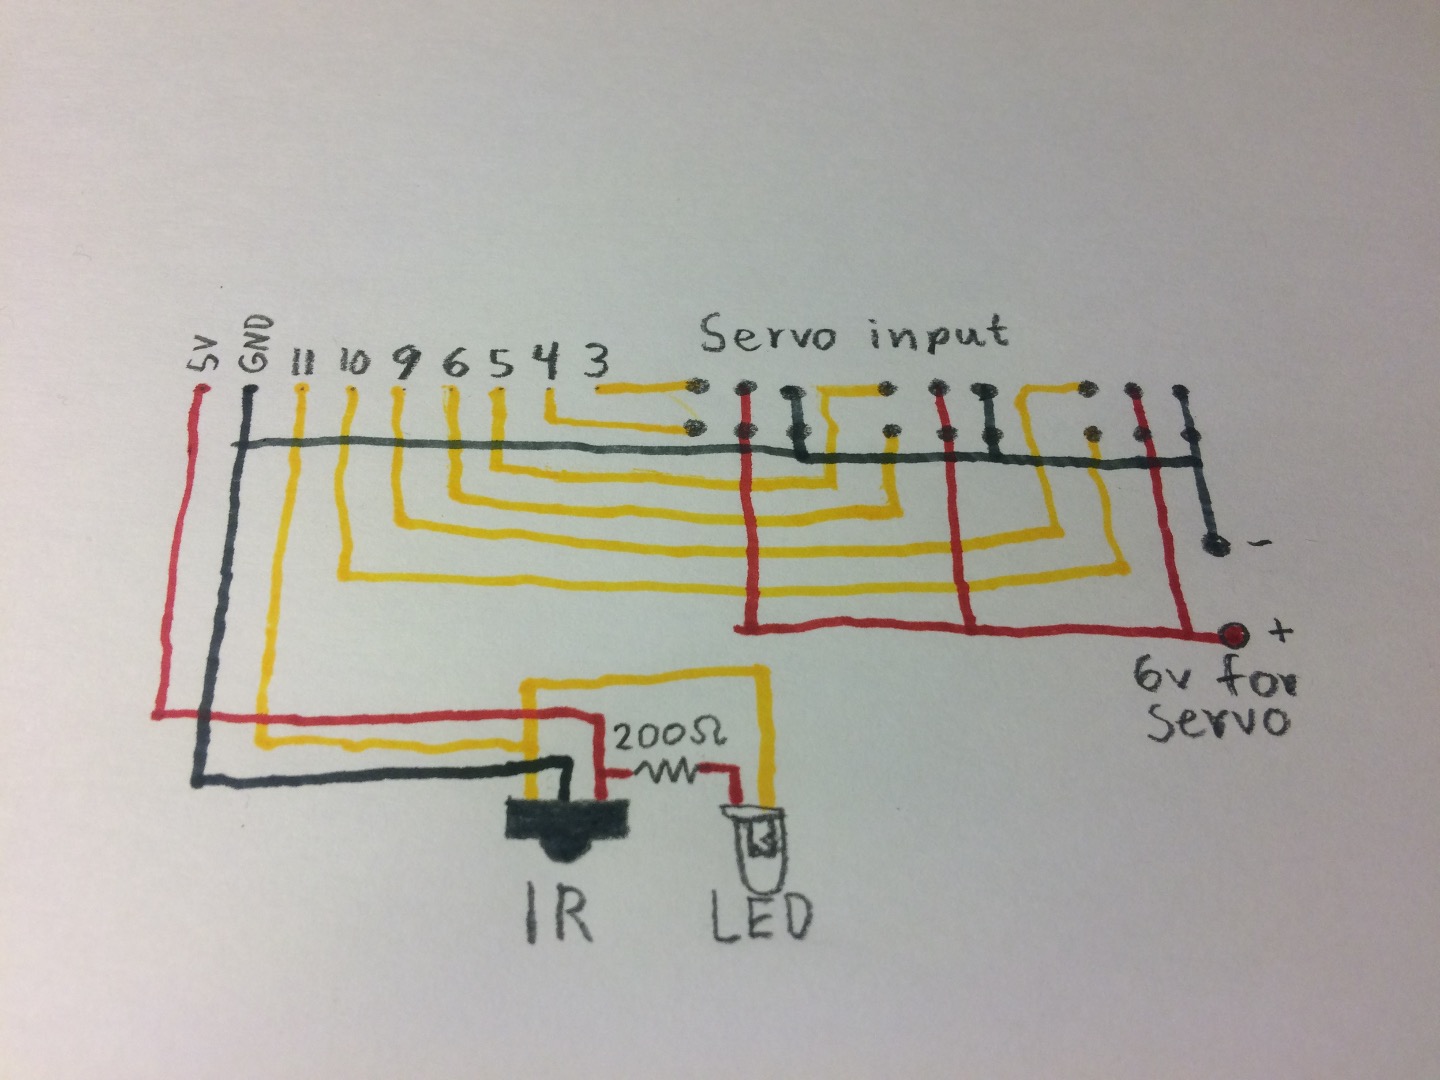 Servo input
5V GND 11 10 9 6 5 4 3
-
+
6v for
Servo
200Ω
IR
LED